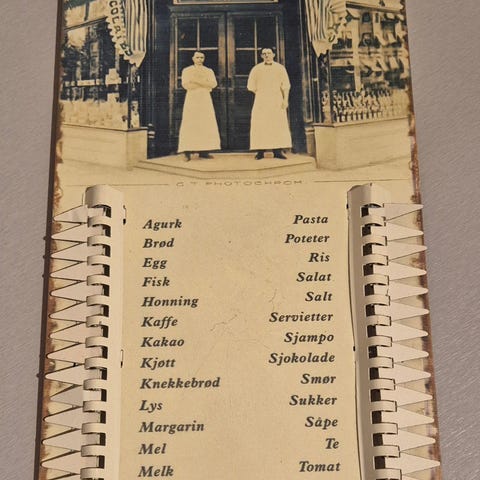 CHOCOLAT
G T PHOTOCHROM
Agurk
Brød
Egg
Fisk
Honning
Kaffe
Kakao
Kjøtt
Knekkebrød
Lys
Margarin
Mel
Melk
Pasta
Poteter
Ris
Salat
Salt
Servietter
Sjampo
Sjokolade
Smør
Sukker
Såpe
Te
Tomat